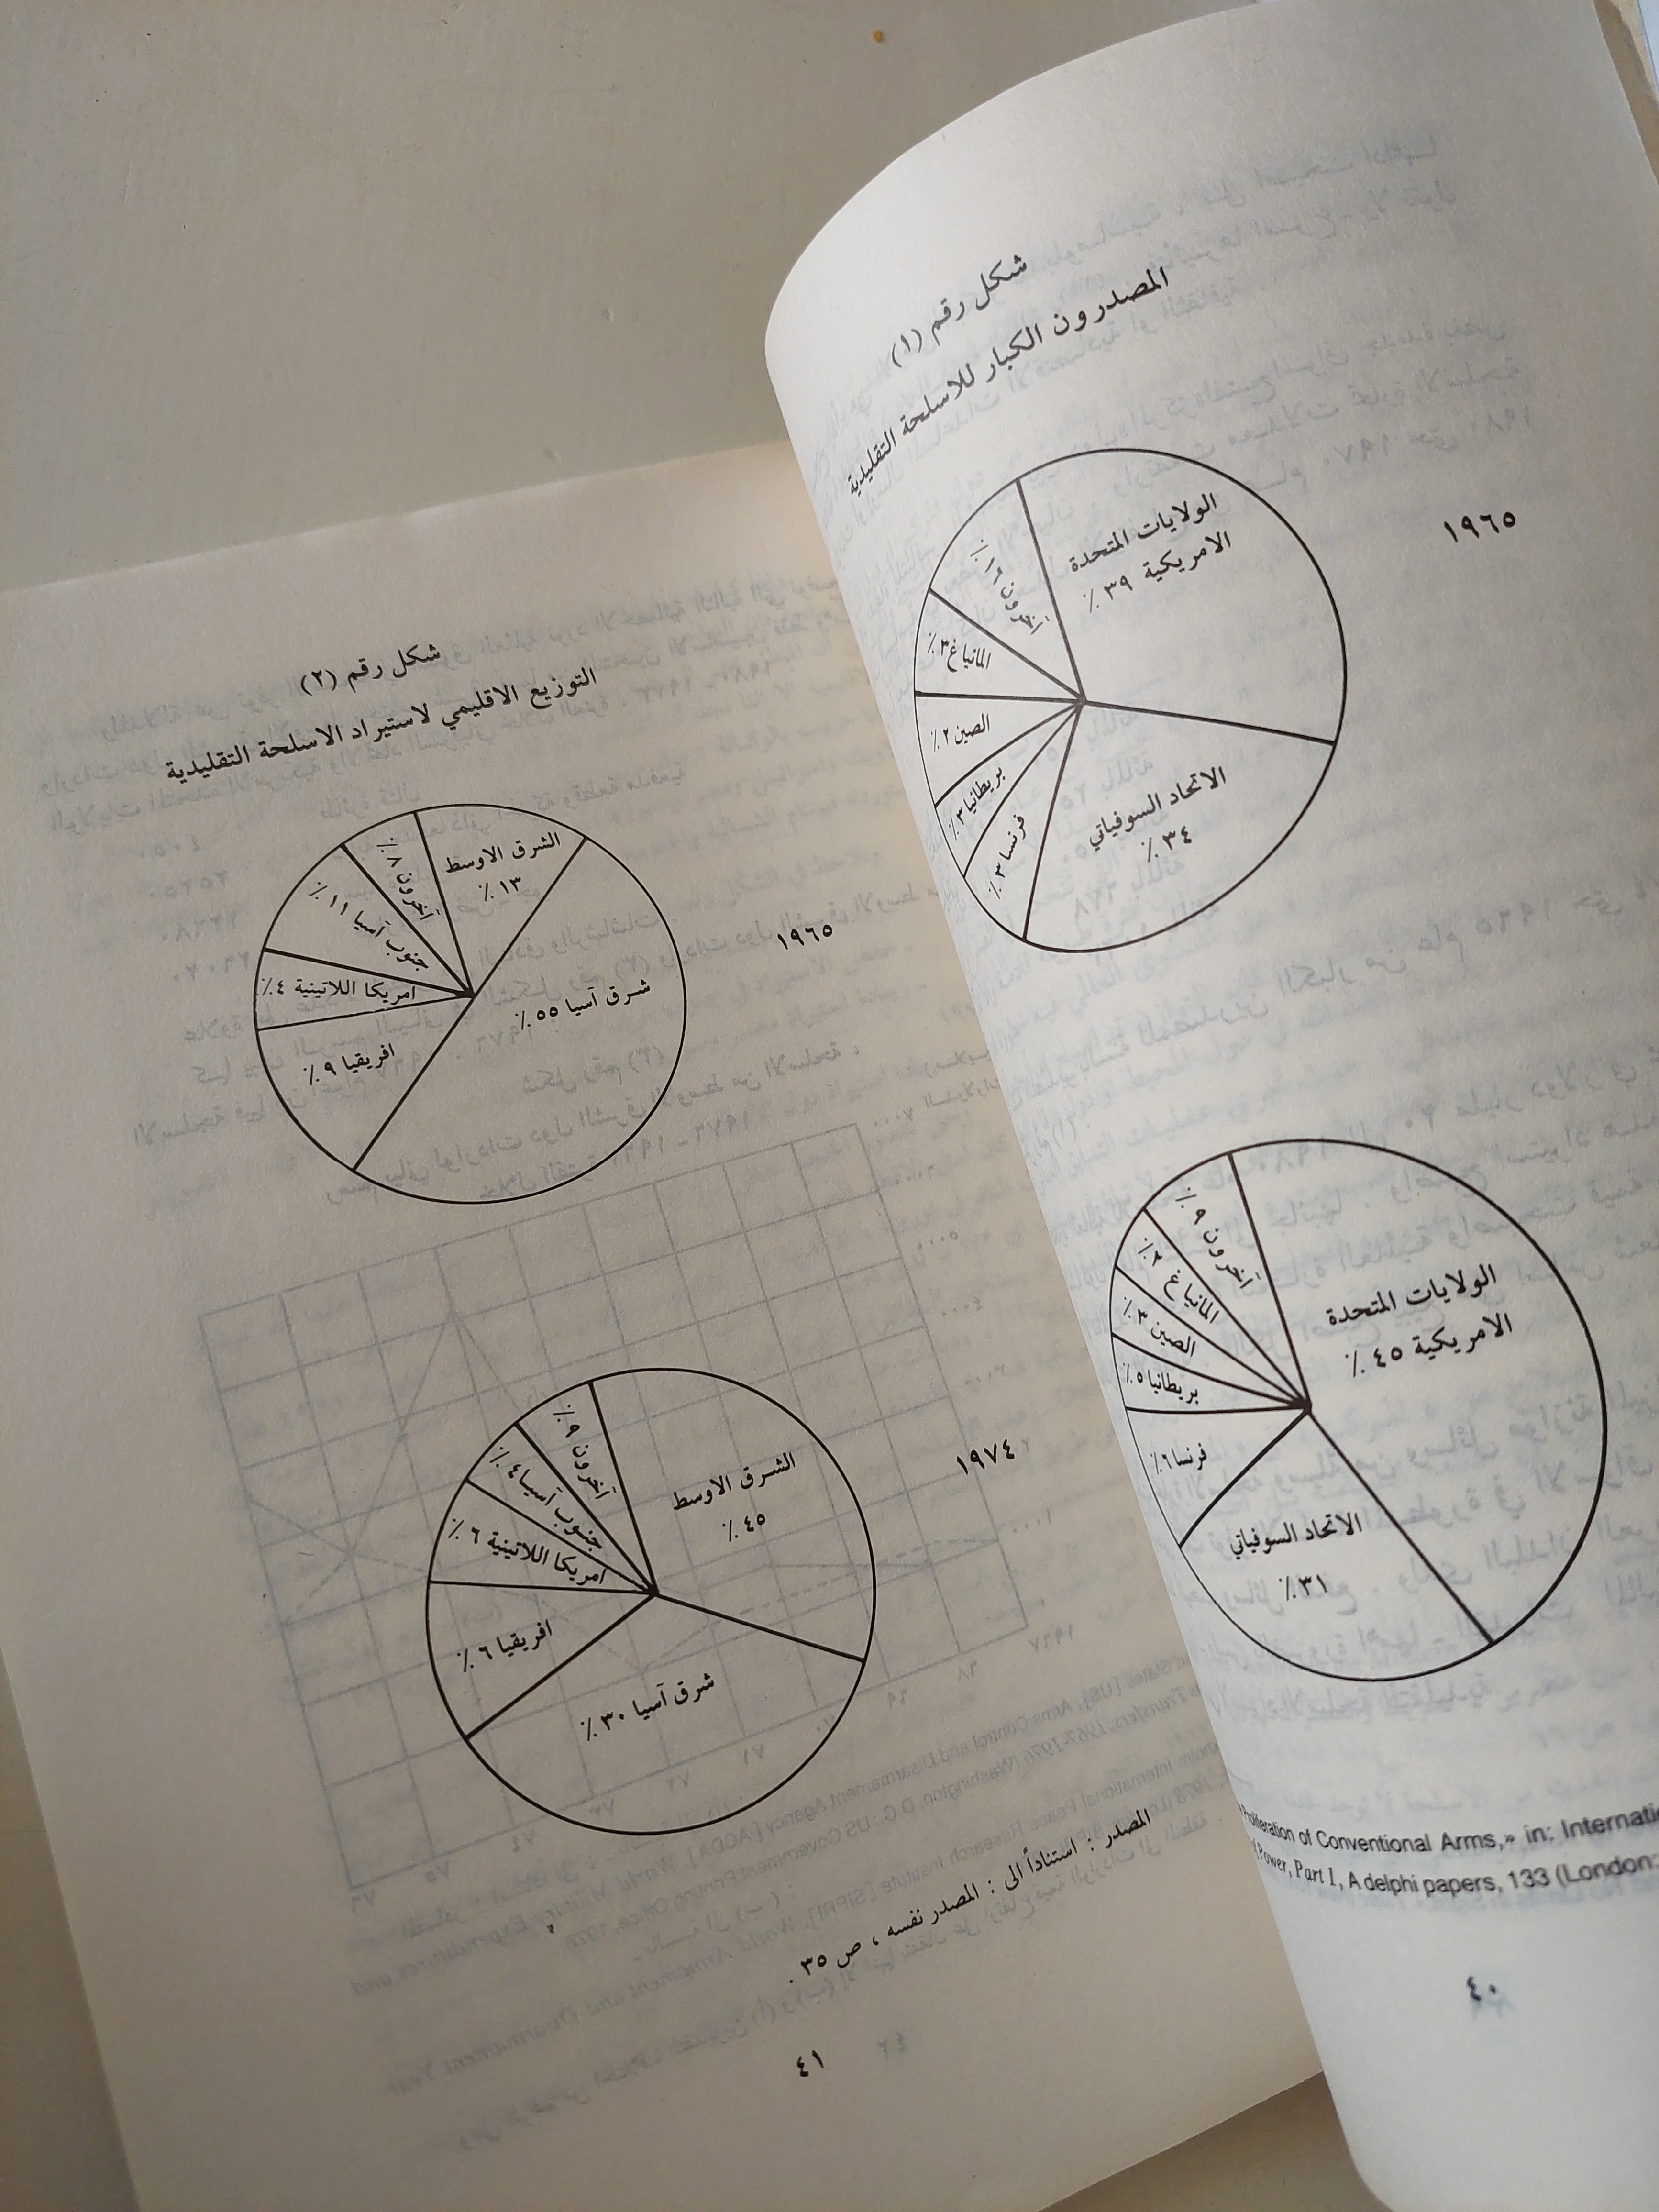 شكل رقم (١)
المصدرون الكبار للاسلحة التقليدية
١٩٦٥
الولايات المتحدة
الامريكية ٣٩ ٪
آخرون
المانيا غ ٣ ٪
الصين ٢ ٪
بريطانيا ٣ ٪
فرنسا ٣ ٪
الاتحاد السوفياتي
٣٤ ٪
الولايات المتحدة
الامريكية ٤٥ ٪
آخرون
المانيا غ
الصين ٣ ٪
بريطانيا ٥ ٪
فرنسا ٦ ٪
الاتحاد السوفياتي
٣١ ٪
Proliferation of Conventional Arms,» in:
Power, Part 1, Adelphi papers, 133 (London:
٤٠
شكل رقم (٢)
التوزيع الاقليمي لاستيراد الاسلحة التقليدية
١٩٦٥
الشرق الاوسط
١٣ ٪
آخرون ٨ ٪
جنوب آسيا ١١ ٪
امريكا اللاتينية ٤ ٪
افريقيا ٩ ٪
شرق آسيا ٥٥ ٪
١٩٧٤
الشرق الاوسط
٤٥ ٪
آخرون ٩ ٪
جنوب آسيا ٤ ٪
امريكا اللاتينية ٦ ٪
افريقيا ٦ ٪
شرق آسيا ٣٠ ٪
المصدر : استناداً الى : المصدر نفسه ، ص ٣٥ .
٤١